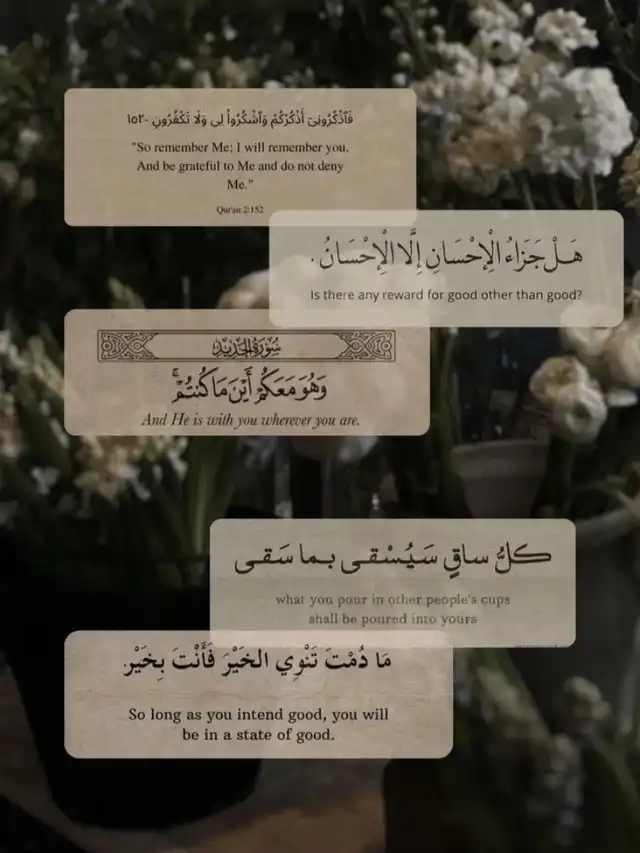 فَٱذْكُرُونِىٓ أَذْكُرْكُمْ وَٱشْكُرُوا۟ لِى وَلَا تَكْفُرُونِ -١٥٢
"So remember Me; I will remember you.
And be grateful to Me and do not deny
Me."
Qur'an 2:152
هَلْ جَزَاءُ الْإِحْسَانِ إِلَّا الْإِحْسَانُ.
Is there any reward for good other than good?
سُورَةُ الحَدِيدِ
وَهُوَ مَعَكُمْ أَيْنَ مَا كُنتُمْ ۚ
And He is with you wherever you are.
كلُّ ساقٍ سَيُسْقى بما سَقى
what you pour in other people's cups
shall be poured into yours
مَا دُمْتَ تَنْوِي الخَيْرَ فَأَنْتَ بِخَيْر.
So long as you intend good, you will
be in a state of good.